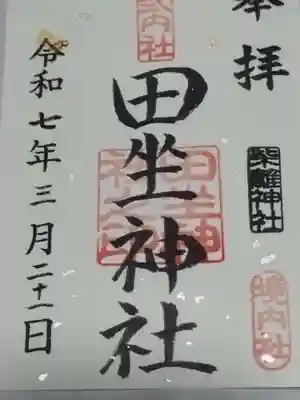 奉拝
柴籬神社
境内社
式内社
田坐神社
令和七年三月二十一日